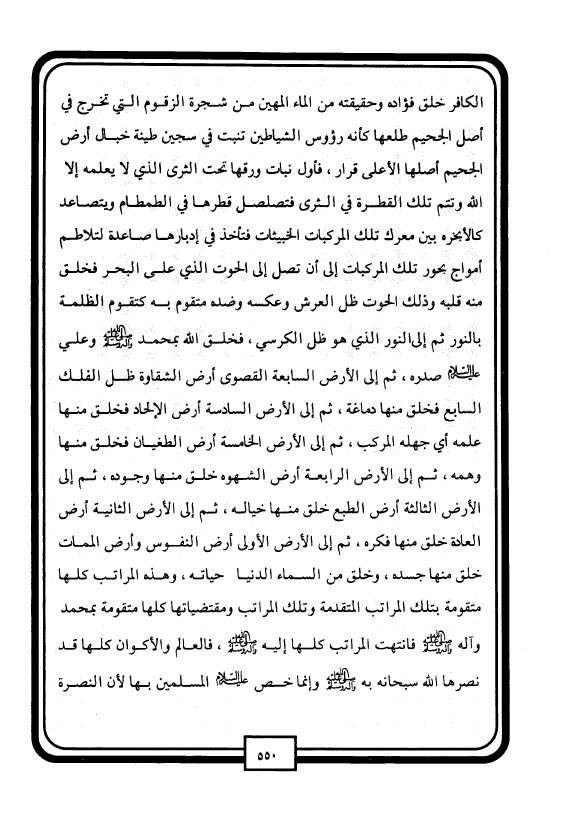 الكافر خلق فؤاده وحقيقته من الماء المهين من شجرة الزقوم التي تخرج في
أصل الجحيم طلعها كأنه رؤوس الشياطين تنبت في سجين طينة خبال أرض
الجحيم أصلها الأعلى قرار ، فأول نبات ورقها تحت الثرى الذي لا يعلمه إلا
الله وتتم تلك القطرة في الثرى فتصلصل قطرها في الطمطام ويتصاعد
كالأبخره بين معرك تلك المركبات الخبيثات فتأخذ في إدبارها صاعدة لتلاطم
أمواج بحور تلك المركبات إلى أن تصل إلى الحوت الذي على البحر فخلق
منه قلبه وذلك الحوت ظل العرش وعكسه وضده متقوم به كتقوم الظلمة
بالنور ثم إلى النور الذي هو ظل الكرسي ، فخلق الله بمحمد ﷺ وعلي
عليه السلام صدره ، ثم إلى الأرض السابعة القصوى أرض الشقاوة ظل الفلك
السابع فخلق منها دماغة ، ثم إلى الأرض السادسة أرض الإلحاد فخلق منها
علمه أي جهله المركب ، ثم إلى الأرض الخامسة أرض الطغيان فخلق منها
وهمه ، ثم إلى الأرض الرابعة أرض الشهوه خلق منها وجوده ، ثم إلى
الأرض الثالثة أرض الطبع خلق منها خياله ، ثم إلى الأرض الثانية أرض
العادة خلق منها فكره ، ثم إلى الأرض الأولى أرض النفوس وأرض الممات
خلق منها جسده ، وخلق من السماء الدنيا حياته ، وهذه المراتب كلها
متقومة بتلك المراتب المتقدمة وتلك المراتب ومقتضياتها كلها متقومة بمحمد
وآله ﷺ فانتهت المراتب كلها إليه ﷺ ، فالعالم والأكوان كلها قد
نصرها الله سبحانه به ﷺ وإنما خص عليه السلام المسلمين بها لأن النصرة
٥٥٠